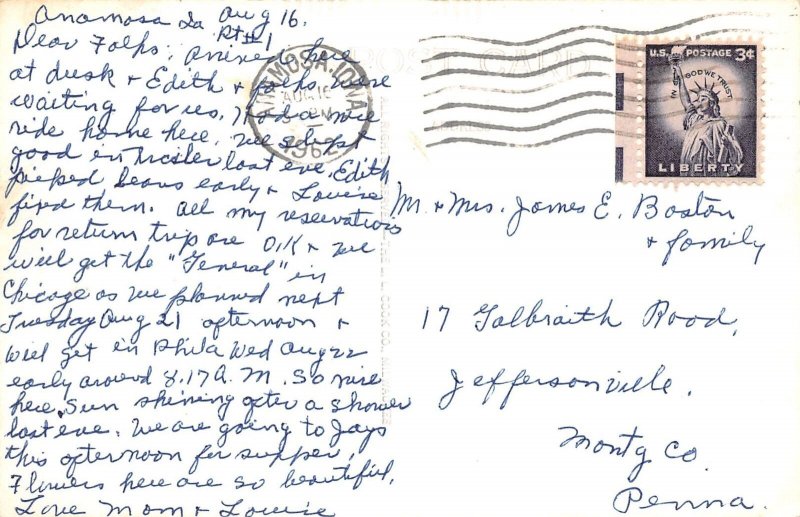 Anamosa Ia Aug 16.
Rt #1
Dear Folks: Arrived here
at dusk + Edith + Jack were
waiting for us. Had a nice
ride home here. We slept
good in trailer last eve. Edith
picked beans early + Louise
fixed them. All my reservations
for return trip are O.K + we
will get the "General" in
Chicago as we planned next
Tuesday Aug 21 afternoon +
will get in Phila Wed Aug 22
early around 8.17 A.M. So nice
here. Sun shining after a shower
last eve. We are going to Jays
this afternoon for supper.
Flowers here are so beautiful.
Love Mom + Louise
POST CARD
ANAMOSA, IOWA
AUG 16
PM
1962
U.S. POSTAGE 3¢
IN GOD WE TRUST
LIBERTY
Mr. + Mrs. James E. Boston
+ family
17 Galbraith Road,
Jeffersonville.
Montg Co.
Penna.